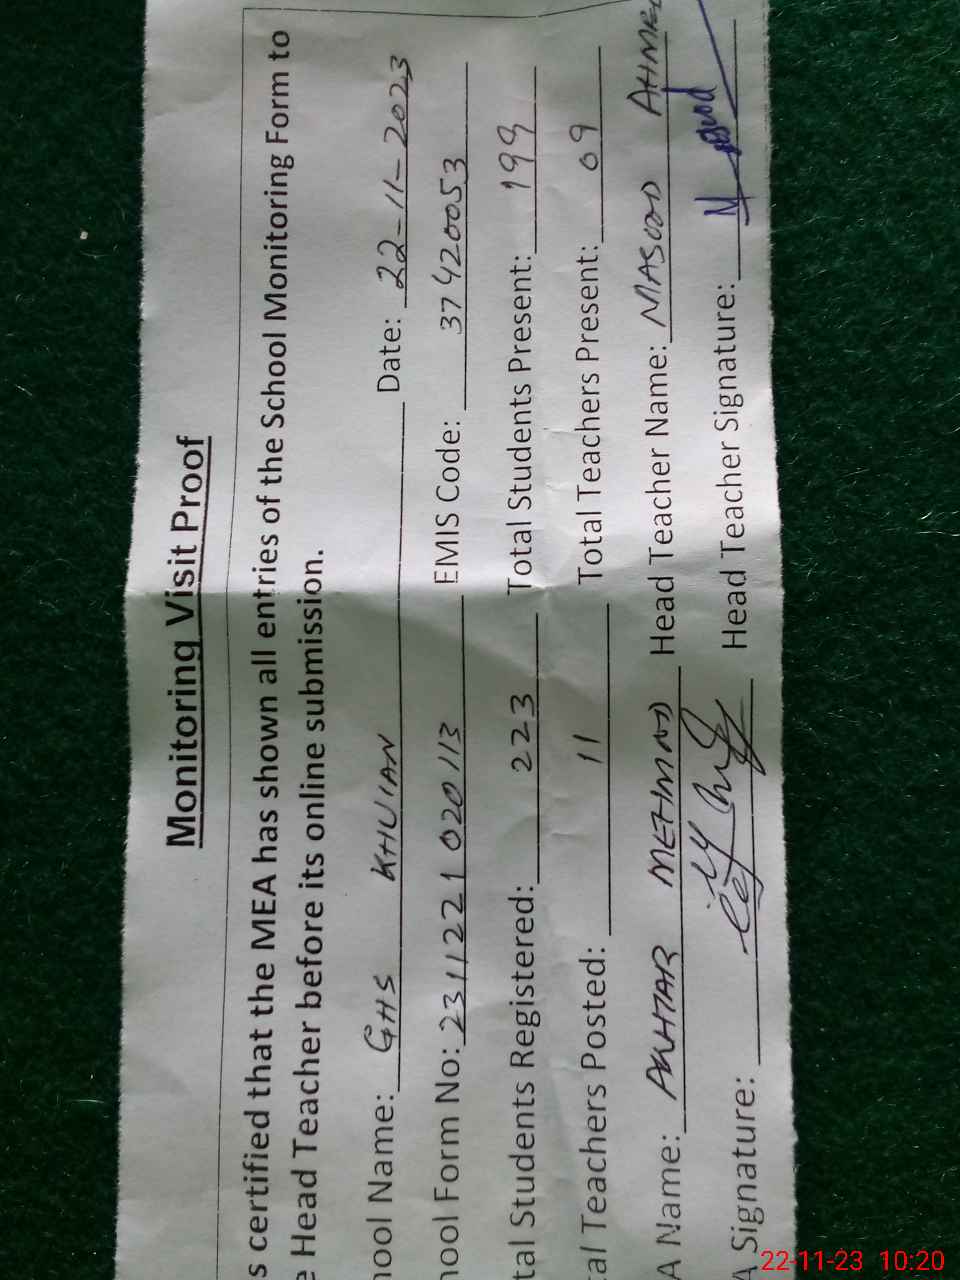 Monitoring Visit Proof
s certified that the MEA has shown all entries of the School Monitoring Form to
e Head Teacher before its online submission.
hool Name: GHS KHUIAN Date: 22-11-2023
hool Form No: 2311221020113 EMIS Code: 37420053
tal Students Registered: 223 Total Students Present: 199
tal Teachers Posted: 11 Total Teachers Present: 09
A Name: AKHTAR MEHMOOD Head Teacher Name: MASOOD AHMED
A Signature: Head Teacher Signature:
22-11-23 10:20